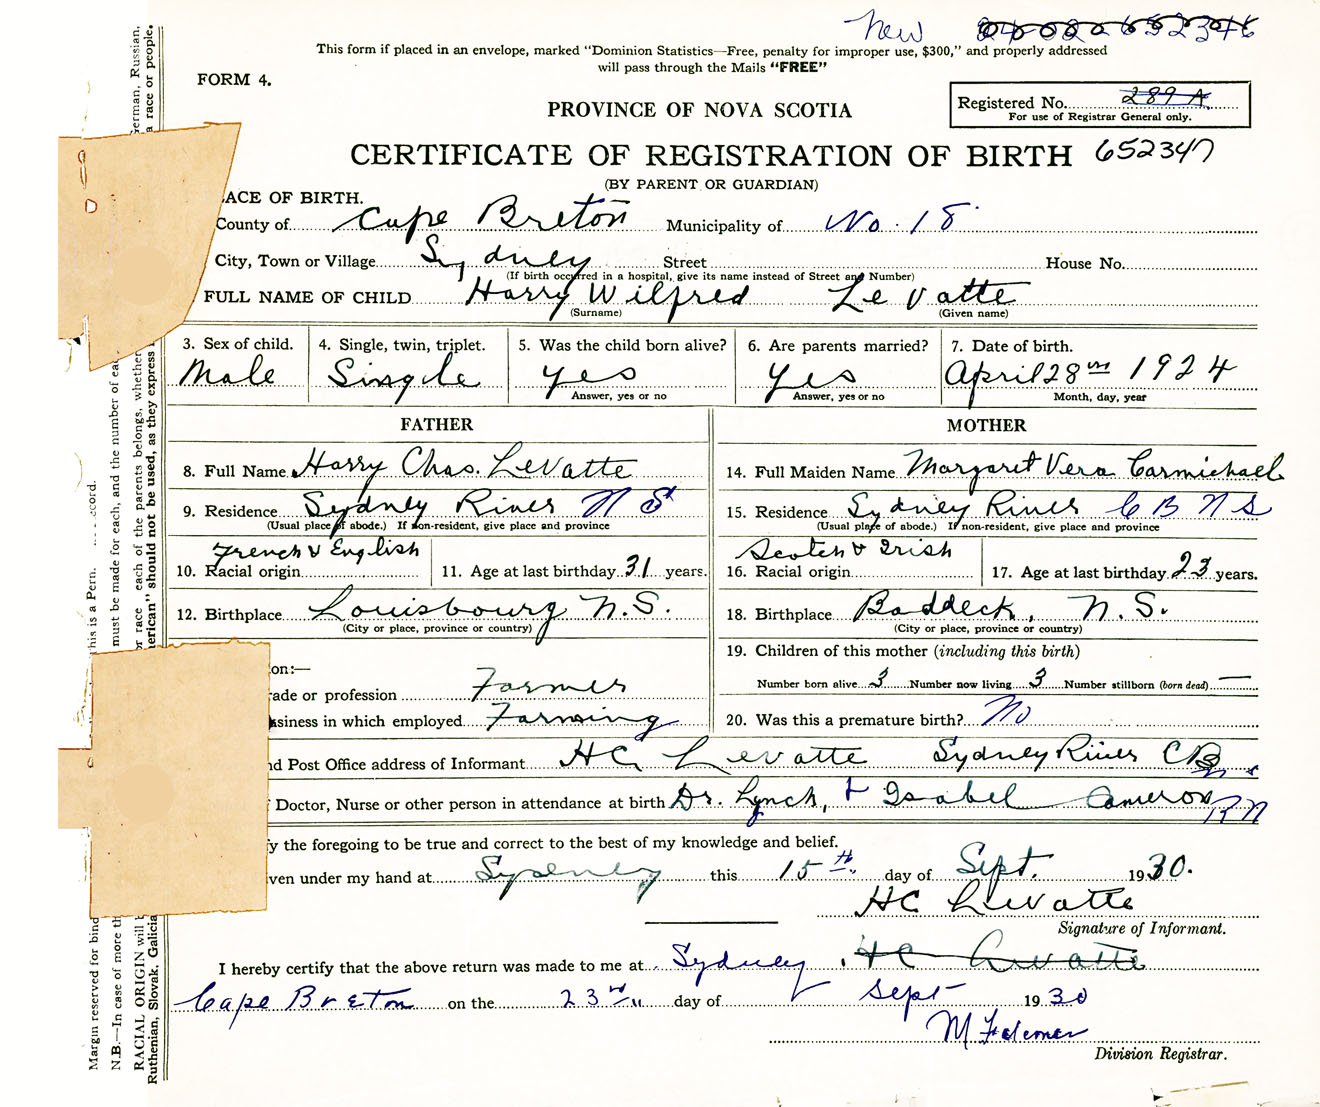 New 84 02 652346
This form if placed in an envelope, marked “Dominion Statistics—Free, penalty for improper use, $300,” and properly addressed
will pass through the Mails “FREE”
FORM 4.
Registered No. 289 A
For use of Registrar General only.
PROVINCE OF NOVA SCOTIA
CERTIFICATE OF REGISTRATION OF BIRTH 652347
(BY PARENT OR GUARDIAN)
ACE OF BIRTH.
County of Cape Breton Municipality of No. 18
City, Town or Village Sydney Street House No.
(If birth occurred in a hospital, give its name instead of Street and Number)
FULL NAME OF CHILD Harry Wilfred Le Vatte
(Surname) (Given name)
3. Sex of child. 4. Single, twin, triplet. 5. Was the child born alive? 6. Are parents married? 7. Date of birth.
Male Single Yes Yes April 28th 1924
Answer, yes or no Answer, yes or no Month, day, year
FATHER MOTHER
8. Full Name Harry Chas. LeVatte 14. Full Maiden Name Margaret Vera Carmichael
9. Residence Sydney River N S 15. Residence Sydney River C B N S
(Usual place of abode.) If non-resident, give place and province (Usual place of abode.) If non-resident, give place and province
French & English Scotch & Irish
10. Racial origin 11. Age at last birthday 31 years. 16. Racial origin 17. Age at last birthday 23 years.
12. Birthplace Louisbourg N.S. 18. Birthplace Baddeck, N.S.
(City or place, province or country) (City or place, province or country)
19. Children of this mother (including this birth)
on:—
Number born alive 3 Number now living 3 Number stillborn (born dead) —
ade or profession Farmer
siness in which employed Farming 20. Was this a premature birth? No
nd Post Office address of Informant HC Levatte Sydney River CB N S
f Doctor, Nurse or other person in attendance at birth Dr. Lynch, & Isabel Cameron RN
fy the foregoing to be true and correct to the best of my knowledge and belief.
ven under my hand at Sydney this 15th day of Sept. 1930.
HC Levatte
Signature of Informant.
I hereby certify that the above return was made to me at Sydney, HC Levatte
Cape Breton on the 23rd day of Sept 1930
Division Registrar.
Margin reserved for bind his is a Pern. cord.
N.B.—In case of more th must be made for each, and the number of eac
RACIAL ORIGIN will b or race each of the parents belongs, whether German, Russian,
Ruthenian, Slovak, Galicia merican” should not be used, as they express a race or people.